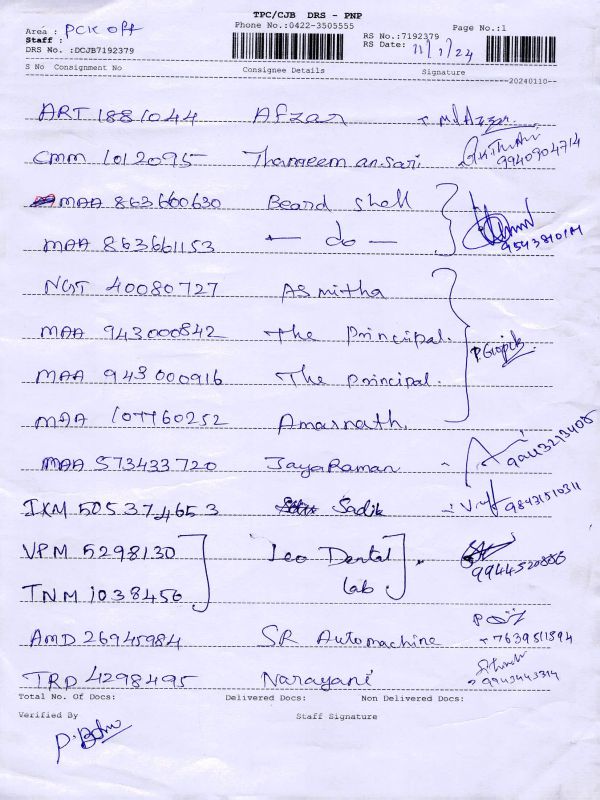 TPC/CJB DRS - PNP
Area : PCK Off Phone No.:0422-3505555 RS No.:7192379 Page No.:1
Staff : RS Date: 11/1/24
DRS No. :DCJB7192379
S No Consignment No Consignee Details Signature
20240110
ART 1881044 Afzan
CMM 1012095 Thameem ansari 9940904714
MAA 863660630 Beard shell
MAA 863661153 — do —
NGT 40080727 Asmitha
MAA 943000842 The Principal.
MAA 943000916 The Principal.
MAA 107760252 Amarnath.
MAA 573433720 JayaRaman
IXM 505374653 Sadik 9843151031
VPM 5298130 Leo Dental
TNM 1038456 Lab
AMD 26945984 SR Automachine 7639511894
TRP 4298495 Narayani 9943443314
Total No. Of Docs: Delivered Docs: Non Delivered Docs:
Verified By Staff Signature